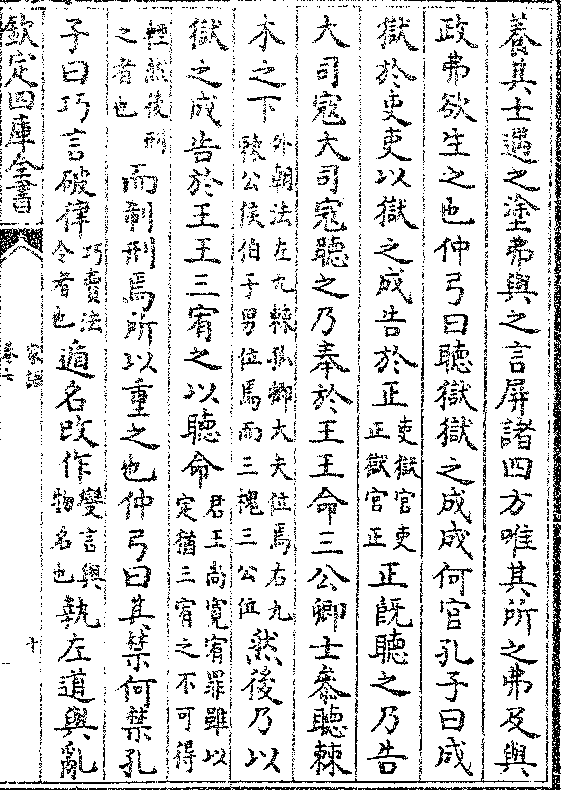 養其士遇之塗弗與之言屏諸四方唯其所之弗及與
政弗欲生之也仲弓曰聽獄獄之成成何官孔子曰成
獄於吏吏以獄之成告於正吏獄官吏正獄官正正既聽之乃告
大司寇大司寇聽之乃奉於王王命三公卿士參聽棘
木之下外朝法左九棘孤卿大夫位焉右九棘公侯伯子男位焉而三槐三公位然後乃以
獄之成告於王王三宥之以聽命君王尚寛宥罪雖以定猶三宥之不可得
輕然後刑之者也而制刑焉所以重之也仲弓曰其禁何禁孔
子曰巧言破律巧賣法令者也遁名改作變言與物名也執左道與亂
欽定四庫全書
家語
卷六
十